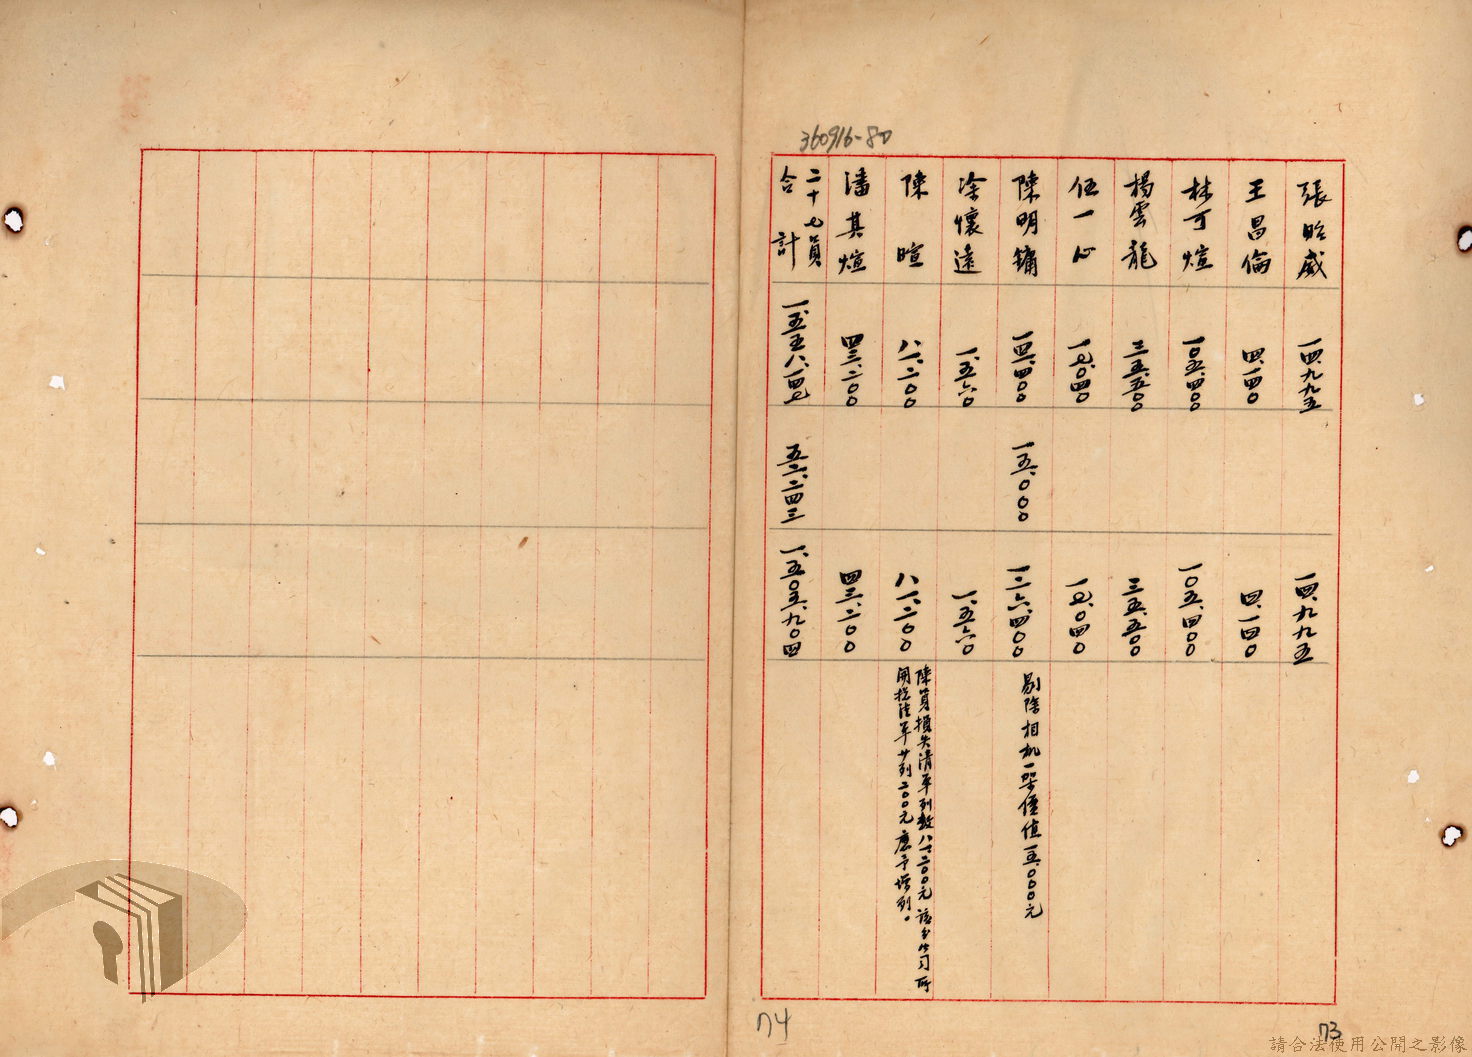 360916-80
張昭威 一四、九九五 一四、九九五
王昌倫 四、一四〇 四、一四〇
林可煊 一〇五、四〇〇 一〇五、四〇〇
楊雲龍 三五、五〇〇 三五、五〇〇
伍一心 一七、〇四〇 一七、〇四〇
陳明鏞 一四一、四〇〇 一五、〇〇〇 一二六、四〇〇 剔除相机一架價值一五、〇〇〇元
涂懷遠 一、五六〇 一、五六〇
陳暄 八一、二〇〇 八一、二〇〇 陳員損失清單列數八一、二〇〇元該台公司所
開總清單廿列二〇〇元應予增列。
潘其煊 四三、二〇〇 四三、二〇〇
二十七員
合計 一、五五八、一四七 五二、二四三 一、五〇五、九〇四
74
73
請合法使用公開之影像